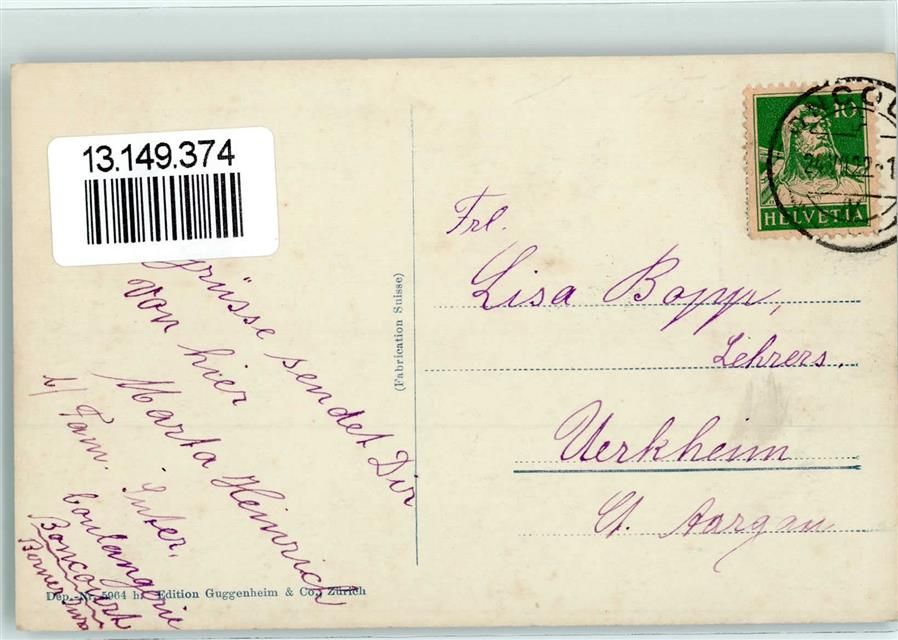 13.149.374
Grüsse sendet Dir
von hier
Marta Heinrich
b/ Fam. Suter,
boulangerie
Boncourt
Berner Jura
Dep.-Nr. 5964 Edition Guggenheim & Co., Zürich
(Fabrication Suisse)
10
HELVETIA
Frl.
Lisa Bopp,
Lehrers.
Uerkheim
Ct. Aargau